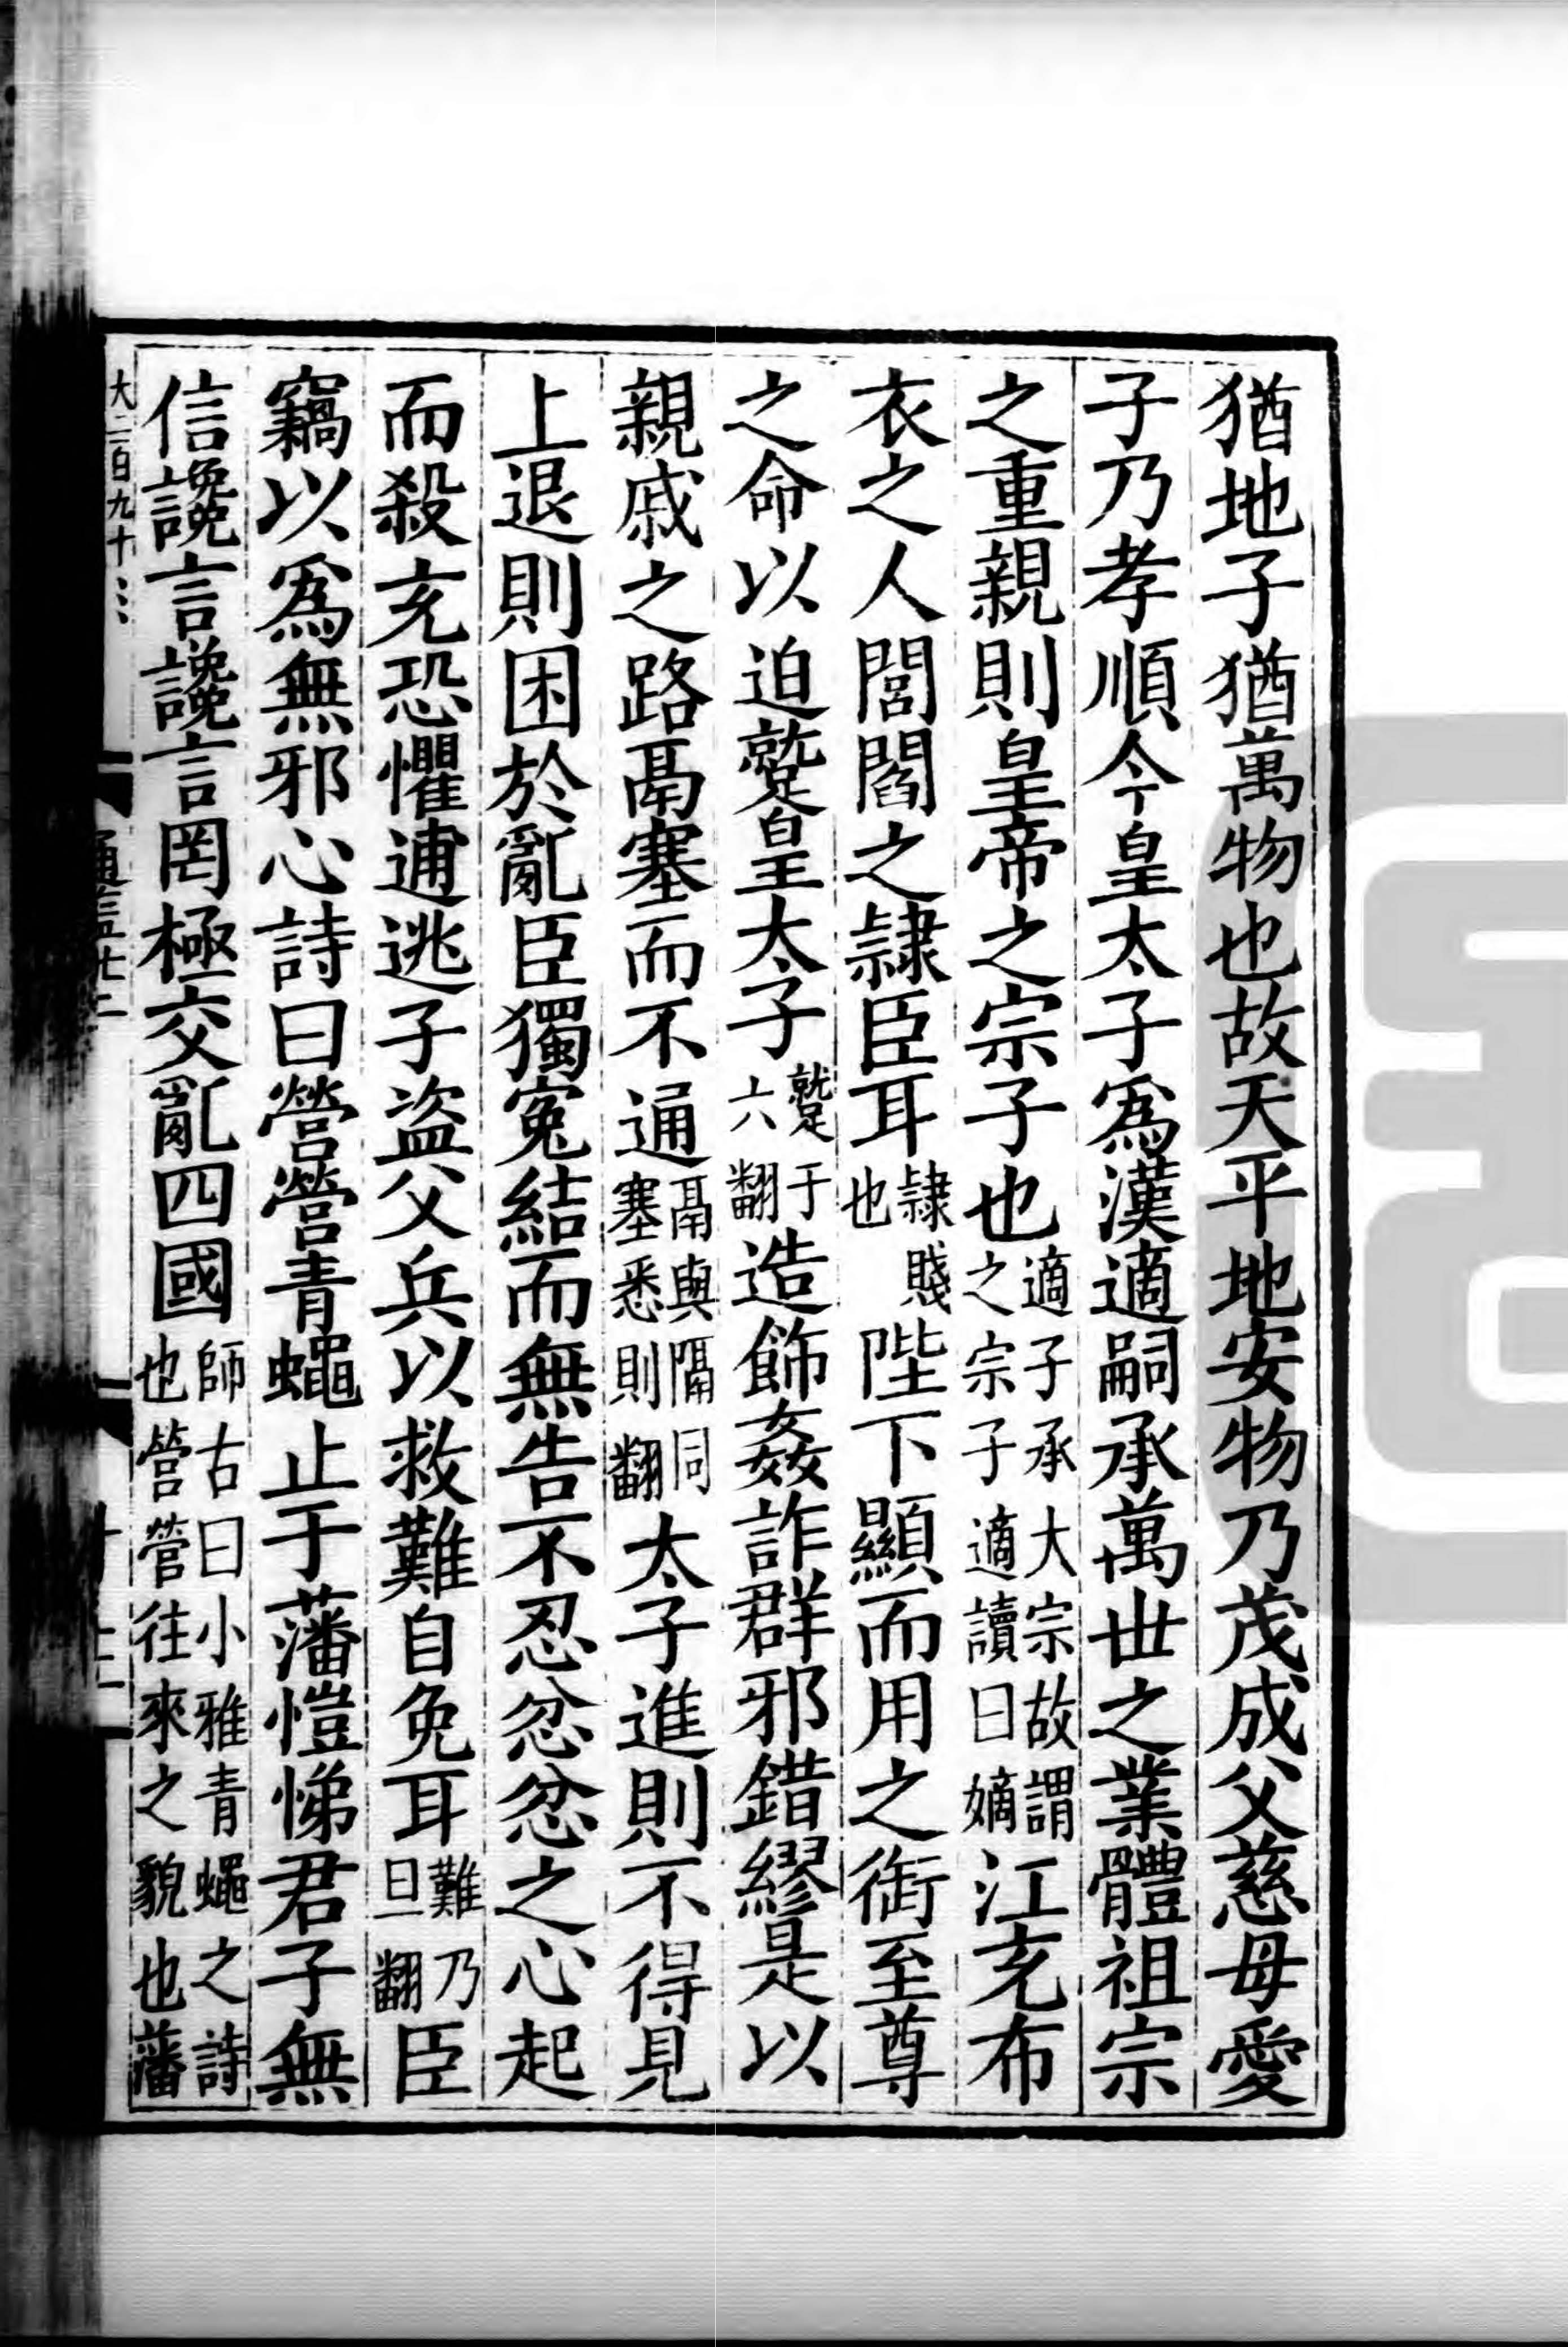 猶地子猶萬物也故天平地安物乃茂成父慈母愛
子乃孝順今皇太子爲漢適嗣承萬世之業體祖宗
之重親則皇帝之宗子也適子承大宗故謂之宗子適讀曰嫡江充布
衣之人閭閻之隷臣耳隷賤也陛下顯而用之銜至尊
之命以迫蹵皇太子蹵于六翻造飾姦詐群邪錯繆是以
親戚之路鬲塞而不通鬲與隔同塞悉則翻太子進則不得見
上退則困於亂臣獨冤結而無告不忍忿忿之心起
而殺充恐懼逋逃子盜父兵以救難自免耳難乃旦翻臣
竊以爲無邪心詩曰營營青蠅止于藩愷悌君子無
信讒言讒言罔極交亂四國師古曰小雅青蠅之詩也營營往來之貌也藩
大二百九十